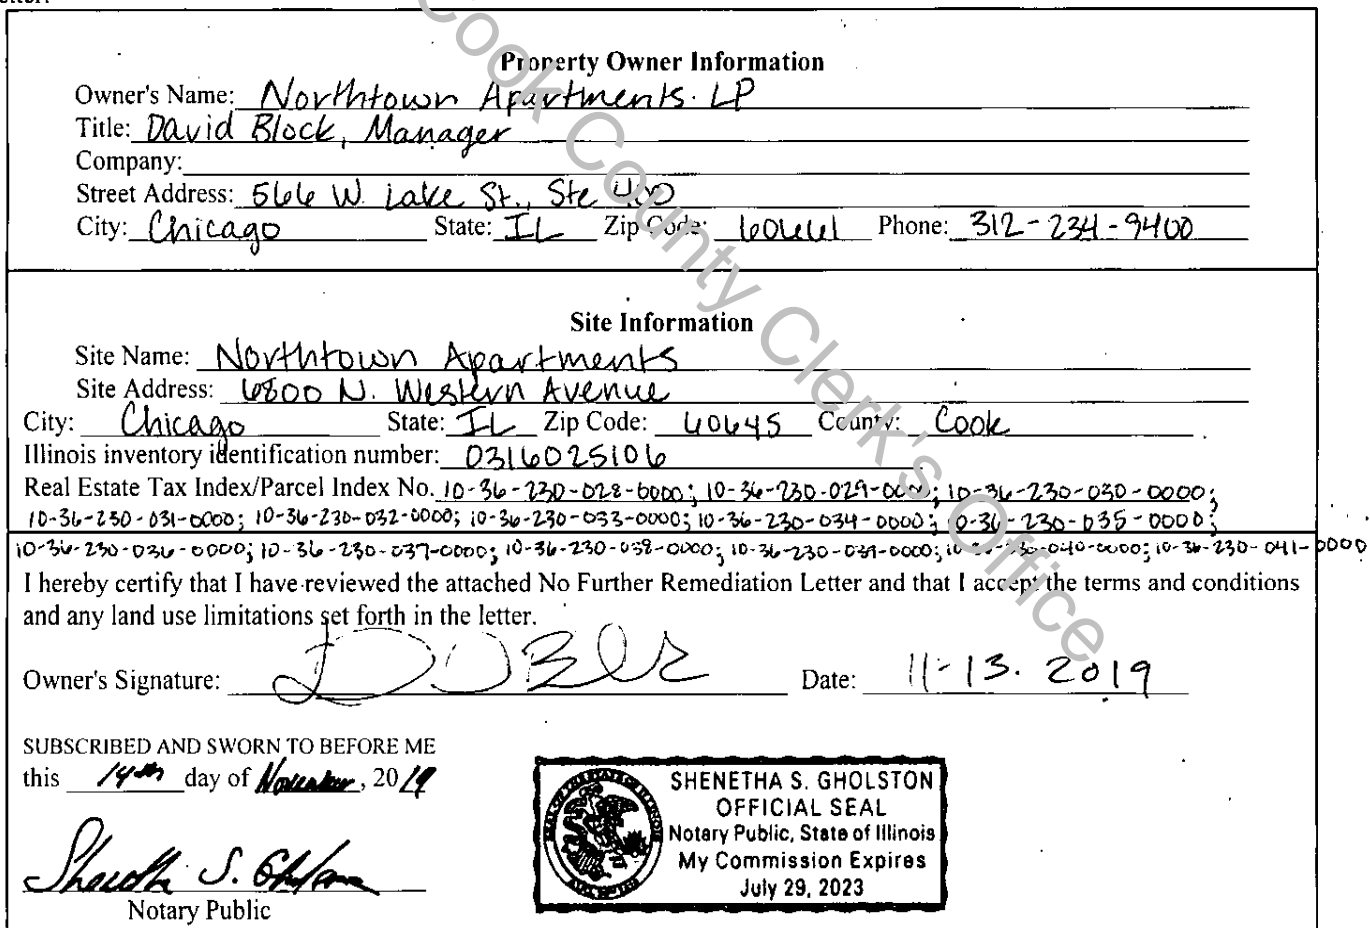 Property Owner Information
Owner's Name: Northtown Apartments LP
Title: David Block, Manager
Company:
Street Address: 566 W. Lake St., Ste 400
City: Chicago State: IL Zip Code: 60661 Phone: 312-234-9400
Site Information
Site Name: Northtown Apartments
Site Address: 6800 N. Western Avenue
City: Chicago State: IL Zip Code: 60645 County: Cook
Illinois inventory identification number: 0316025106
Real Estate Tax Index/Parcel Index No. 10-36-230-028-0000; 10-36-230-029-0000; 10-36-230-030-0000;
10-36-230-031-0000; 10-36-230-032-0000; 10-36-230-033-0000; 10-36-230-034-0000; 10-36-230-035-0000;
10-36-230-036-0000; 10-36-230-037-0000; 10-36-230-038-0000; 10-36-230-039-0000; 10-36-230-040-0000; 10-36-230-041-0000
I hereby certify that I have reviewed the attached No Further Remediation Letter and that I accept the terms and conditions
and any land use limitations set forth in the letter.
Owner's Signature: Date: 11-13. 2019
SUBSCRIBED AND SWORN TO BEFORE ME
this 14th day of November, 2019
SHENETHA S. GHOLSTON
OFFICIAL SEAL
Notary Public, State of Illinois
My Commission Expires
July 29, 2023
Notary Public
Cook County Clerk's Office